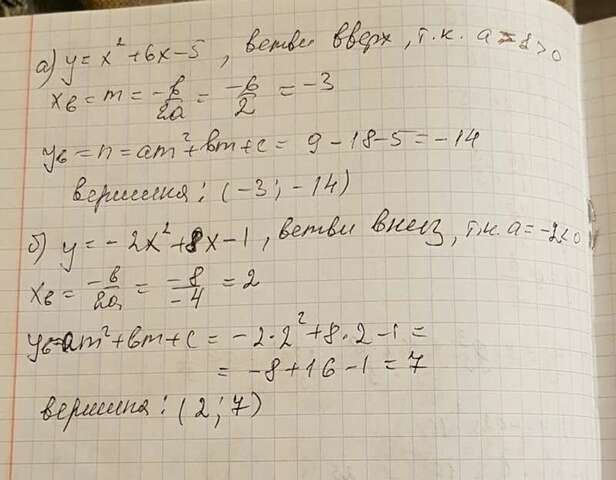 а) y = x² + 6x - 5, ветви вверх, т.к. a = 1 > 0
xв = m = -b/2a = -6/2 = -3
yв = n = am² + bm + c = 9 - 18 - 5 = -14
вершина: (-3; -14)
б) y = -2x² + 8x - 1, ветви вниз, т.к. a = -2 < 0
xв = -b/2a = -8/-4 = 2
yв = am² + bm + c = -2·2² + 8·2 - 1 =
= -8 + 16 - 1 = 7
вершина: (2; 7)